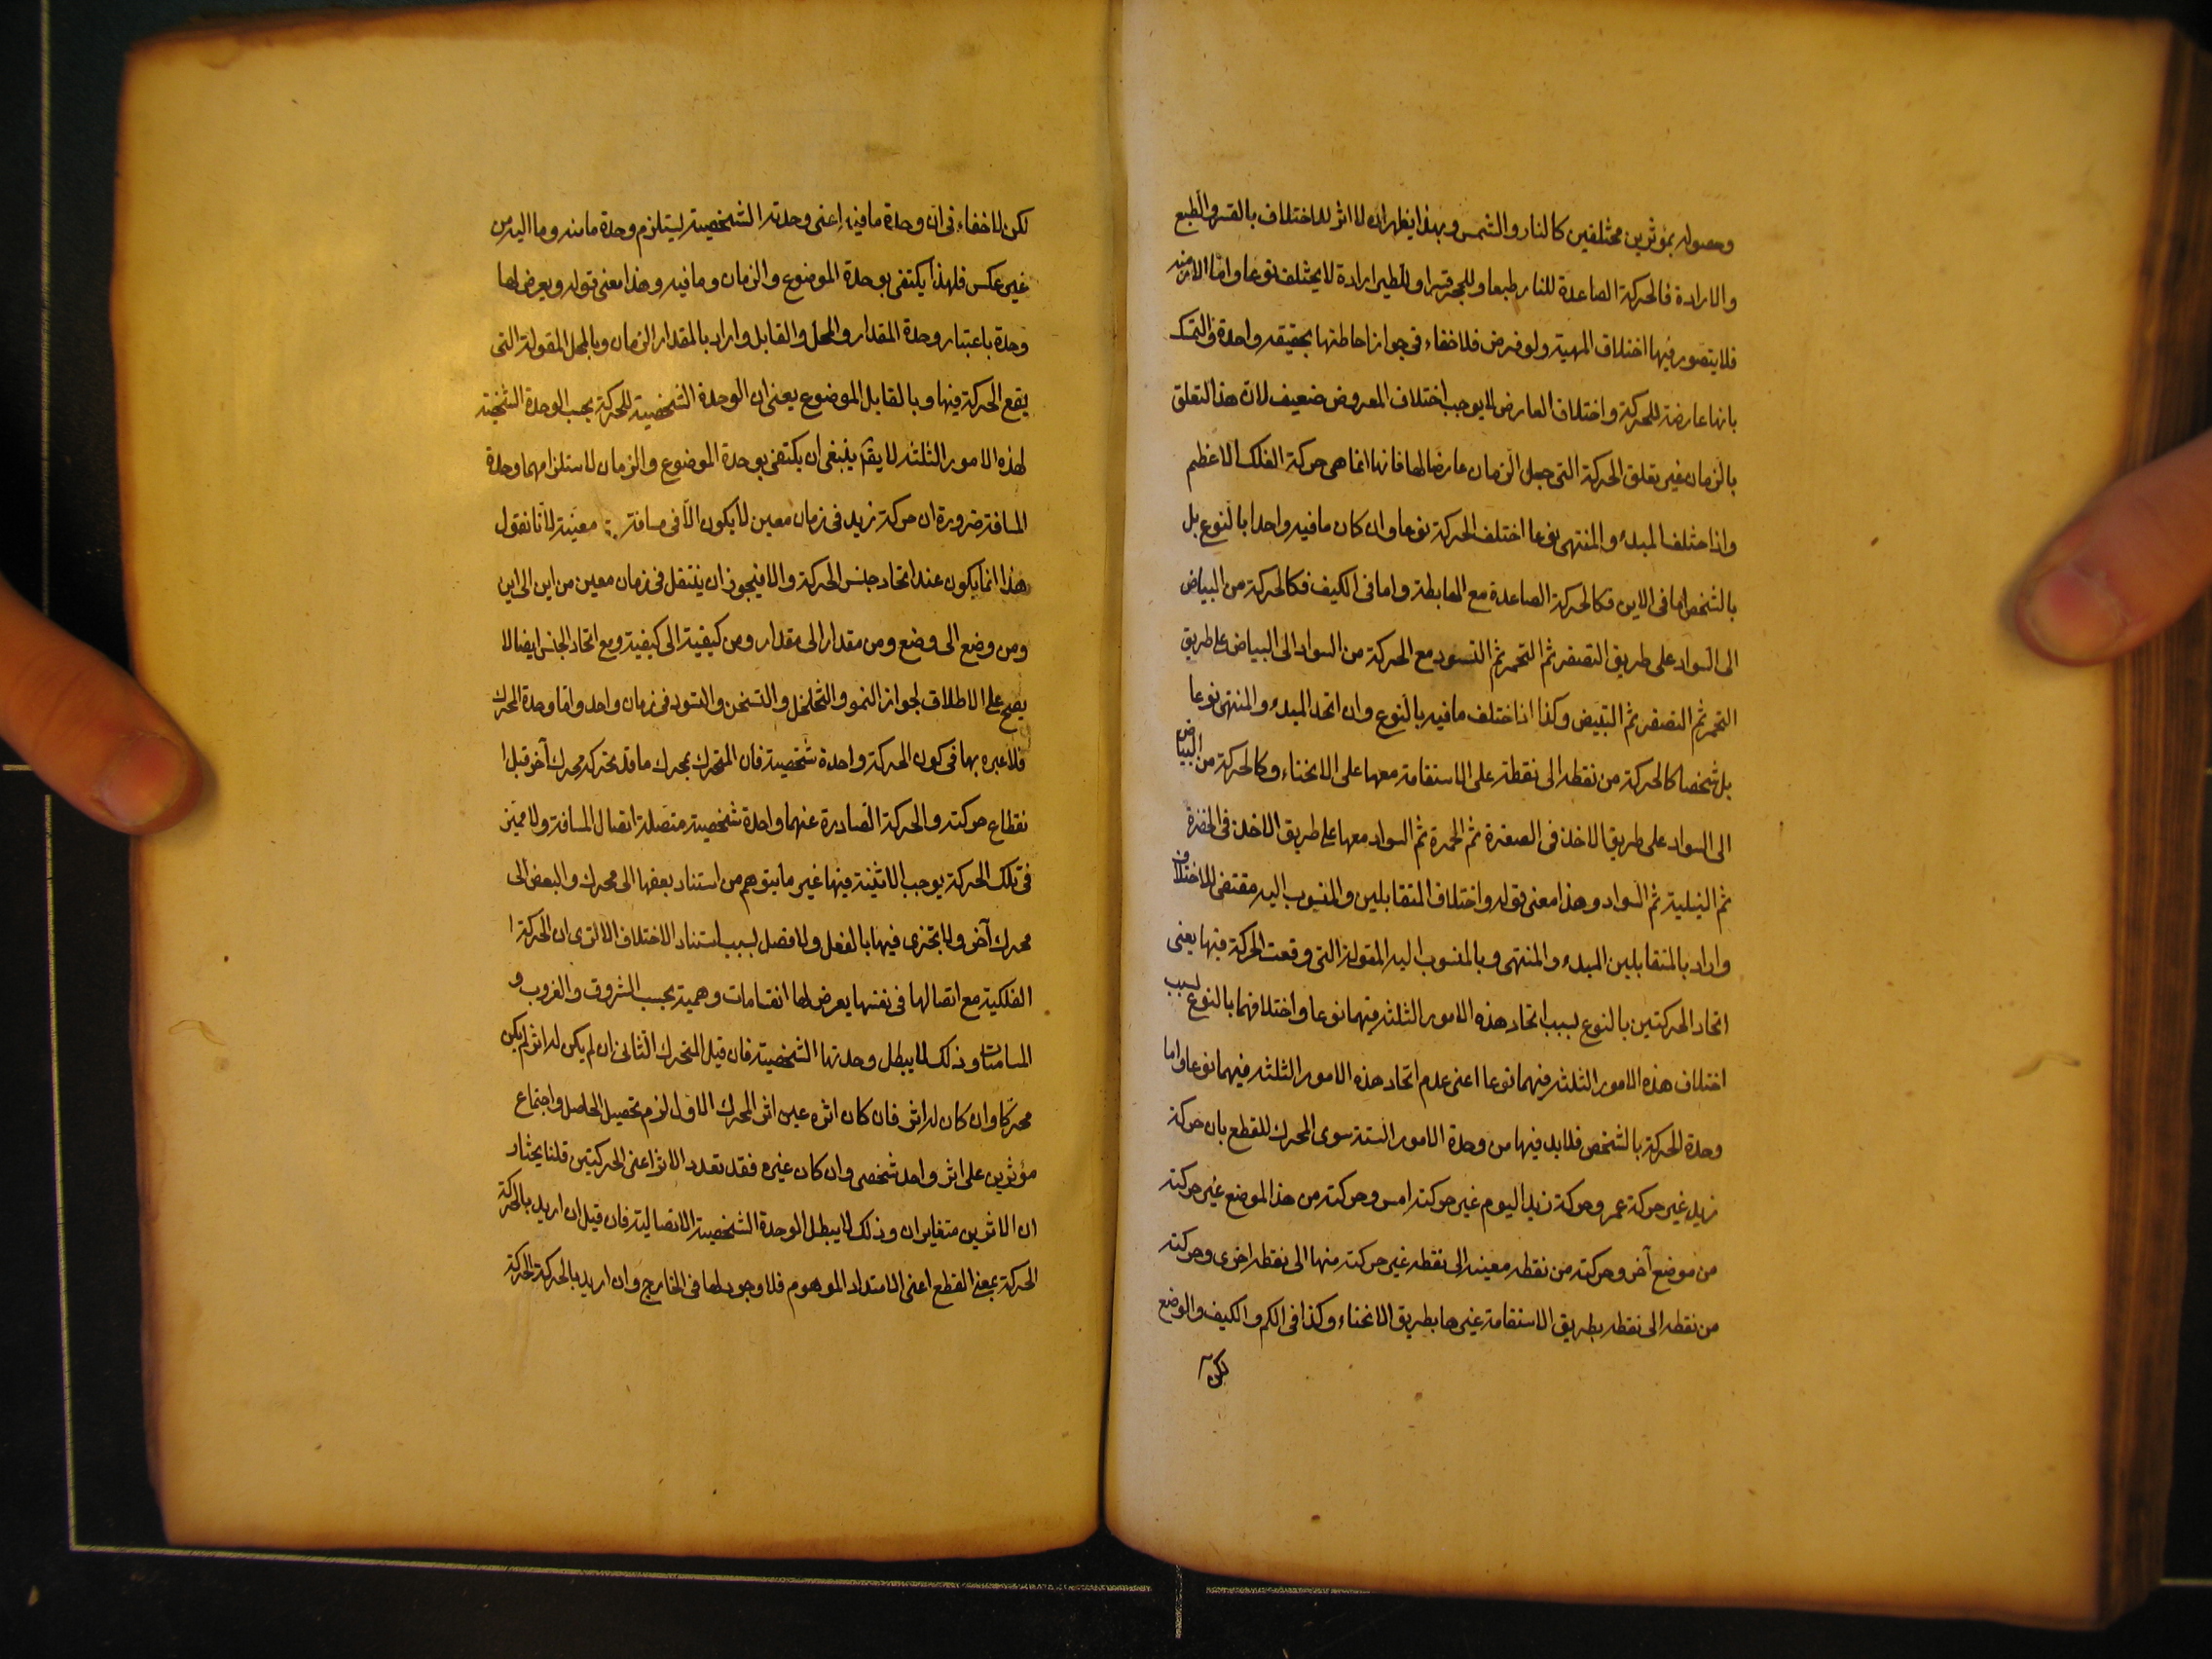 وحصوله بمؤثرين مختلفين كالنار والشمس وبهذا يظهر ان لا اثر للاختلاف بالقسر والطبع
والارادة فالحركة الصاعدة للنار طبعا وللحجر قسرا وللطير ارادة لا يختلف نوعا واما الازمنه
فلا يتصور فيها اختلاف المهية ولو فرض فلا خفاء في جواز احاطتها بحقيقه واحدة والتمسك
بانها عارضة للحركة واختلاف العارض لا يوجب اختلاف المعروض ضعيف لان هذا التعلق
بالزمان غير تعلق الحركة التي جعل الزمان عارضا لها فانها انما هي حركة الفلك الاعظم
واذا اختلف المبدء والمنتهى نوعا اختلف الحركة نوعا وان كان ما فيه واحدا بالنوع بل
بالشخص اما في الاين فكالحركة الصاعدة مع الهابطة واما في الكيف فكالحركة من البياض
الى السواد على طريق التصفر ثم التحمر ثم التسود مع الحركة من السواد الى البياض على طريق
التحمر ثم التصفر ثم التبيض وكذا اذا اختلف ما فيه بالنوع وان اتحد المبدء والمنتهى نوعا
بل شخصا كالحركة من نقطه الى نقطة على الاستقامة معها على الانحناء وكالحركة من البياض
الى السواد على طريق الاخذ في الصفرة ثم الحمرة ثم السواد معها على طريق الاخذ في الخضرة
ثم النيلية ثم السواد وهذا معنى قوله واختلاف المتقابلين والمنسوب اليه مقتضى للاختلاف
واراد بالمتقابلين المبدء والمنتهى وبالمنسوب اليه المقولة التي وقعت الحركة فيها يعنى
اتحاد الحركتين بالنوع بسبب اتحاد هذه الامور الثلثه فيهما نوعا واختلافهما بالنوع بسبب
اختلاف هذه الامور الثلثه فيهما نوعا اعنى عدم اتحاد هذه الامور الثلثه فيهما نوعا واما
وحدة الحركة بالشخص فلا بد فيها من وحدة الامور الستة سوى المحرك للقطع بان حركة
زيد غير حركة عمرو وحركة زيد اليوم غير حركته امس وحركته من هذا الموضع غير حركته
من موضع آخر وحركته من نقطه معينه الى نقطه غير حركته منها الى نقطه اخرى وحركته
من نقطه الى نقطه بطريق الاستقامة غيرها بطريق الانحناء وكذا في الكم والكيف والوضع
لكن
لكن لا خفاء في ان وحدة ما فيه اعنى وحدته الشخصية يستلزم وحدة ما منه وما اليه من
غير عكس فلهذا يكتفى بوحدة الموضوع والزمان وما فيه وهذا معنى قوله ويعرض لها
وحدة باعتبار وحدة المقدار والمحل والقابل واراد بالمقدار الزمان وبالمحل المقولة التي
يقع الحركة فيها وبالقابل الموضوع يعنى ان الوحدة الشخصية للحركة بحسب الوحدة الشخصية
لهذه الامور الثلثه لا يقال ينبغى ان يكتفى بوحدة الموضوع والزمان لاستلزامهما وحدة
المسافة ضرورة ان حركة زيد في زمان معين لا يكون الا في مسافة معينة لانا نقول
هذا انما يكون عند اتحاد جنس الحركة والا فيجوز ان ينتقل في زمان معين من اين الى اين
ومن وضع الى وضع ومن مقدار الى مقدار ومن كيفية الى كيفية ومع اتحاد الجنس ايضا لا
يصح على الاطلاق لجواز النمو والتخلخل والتسخن والتسود في زمان واحد واما وحدة المحرك
فلا عبره بها في كون الحركة واحدة شخصية فان المتحرك بمحرك ما قد يحركه محرك آخر قبل ا
نقطاع حركته والحركة الصادرة عنهما واحدة شخصية متصلة اتصال المسافة ولا مميز
في تلك الحركة يوجب الاثنينة فيها غير ما يتوهم من استناد بعضها الى محرك والبعض الى
محرك آخر ولا يتجزى فيها بالفعل ولا فصل بسبب استناد الاختلاف الا لا ترى ان الحركة ا
الفلكية مع اتصالها في نفسها يعرض لها انقسامات وهمية بحسب الشروق والغروب و
المسامتات وذلك لا يبطل وحدتها الشخصية فان قيل المتحرك الثاني ان لم يكن له اثر لم يكن
محركا وان كان له اثر فان كان اثره عين اثر المحرك الاول لزم تحصيل الحاصل واجتماع
مؤثرين على اثر واحد شخصى وان كان غيره فقد تعدد الاثر اعنى الحركتين قلنا يختار
ان الاثرين متغايران وذلك لا يبطل الوحدة الشخصية الاتصالية فان قيل ان اريد بالحركة
الحركة بمعنى القطع اعنى الامتداد الموهوم فلا وجود لها في الخارج وان اريد بالحركة الحركة